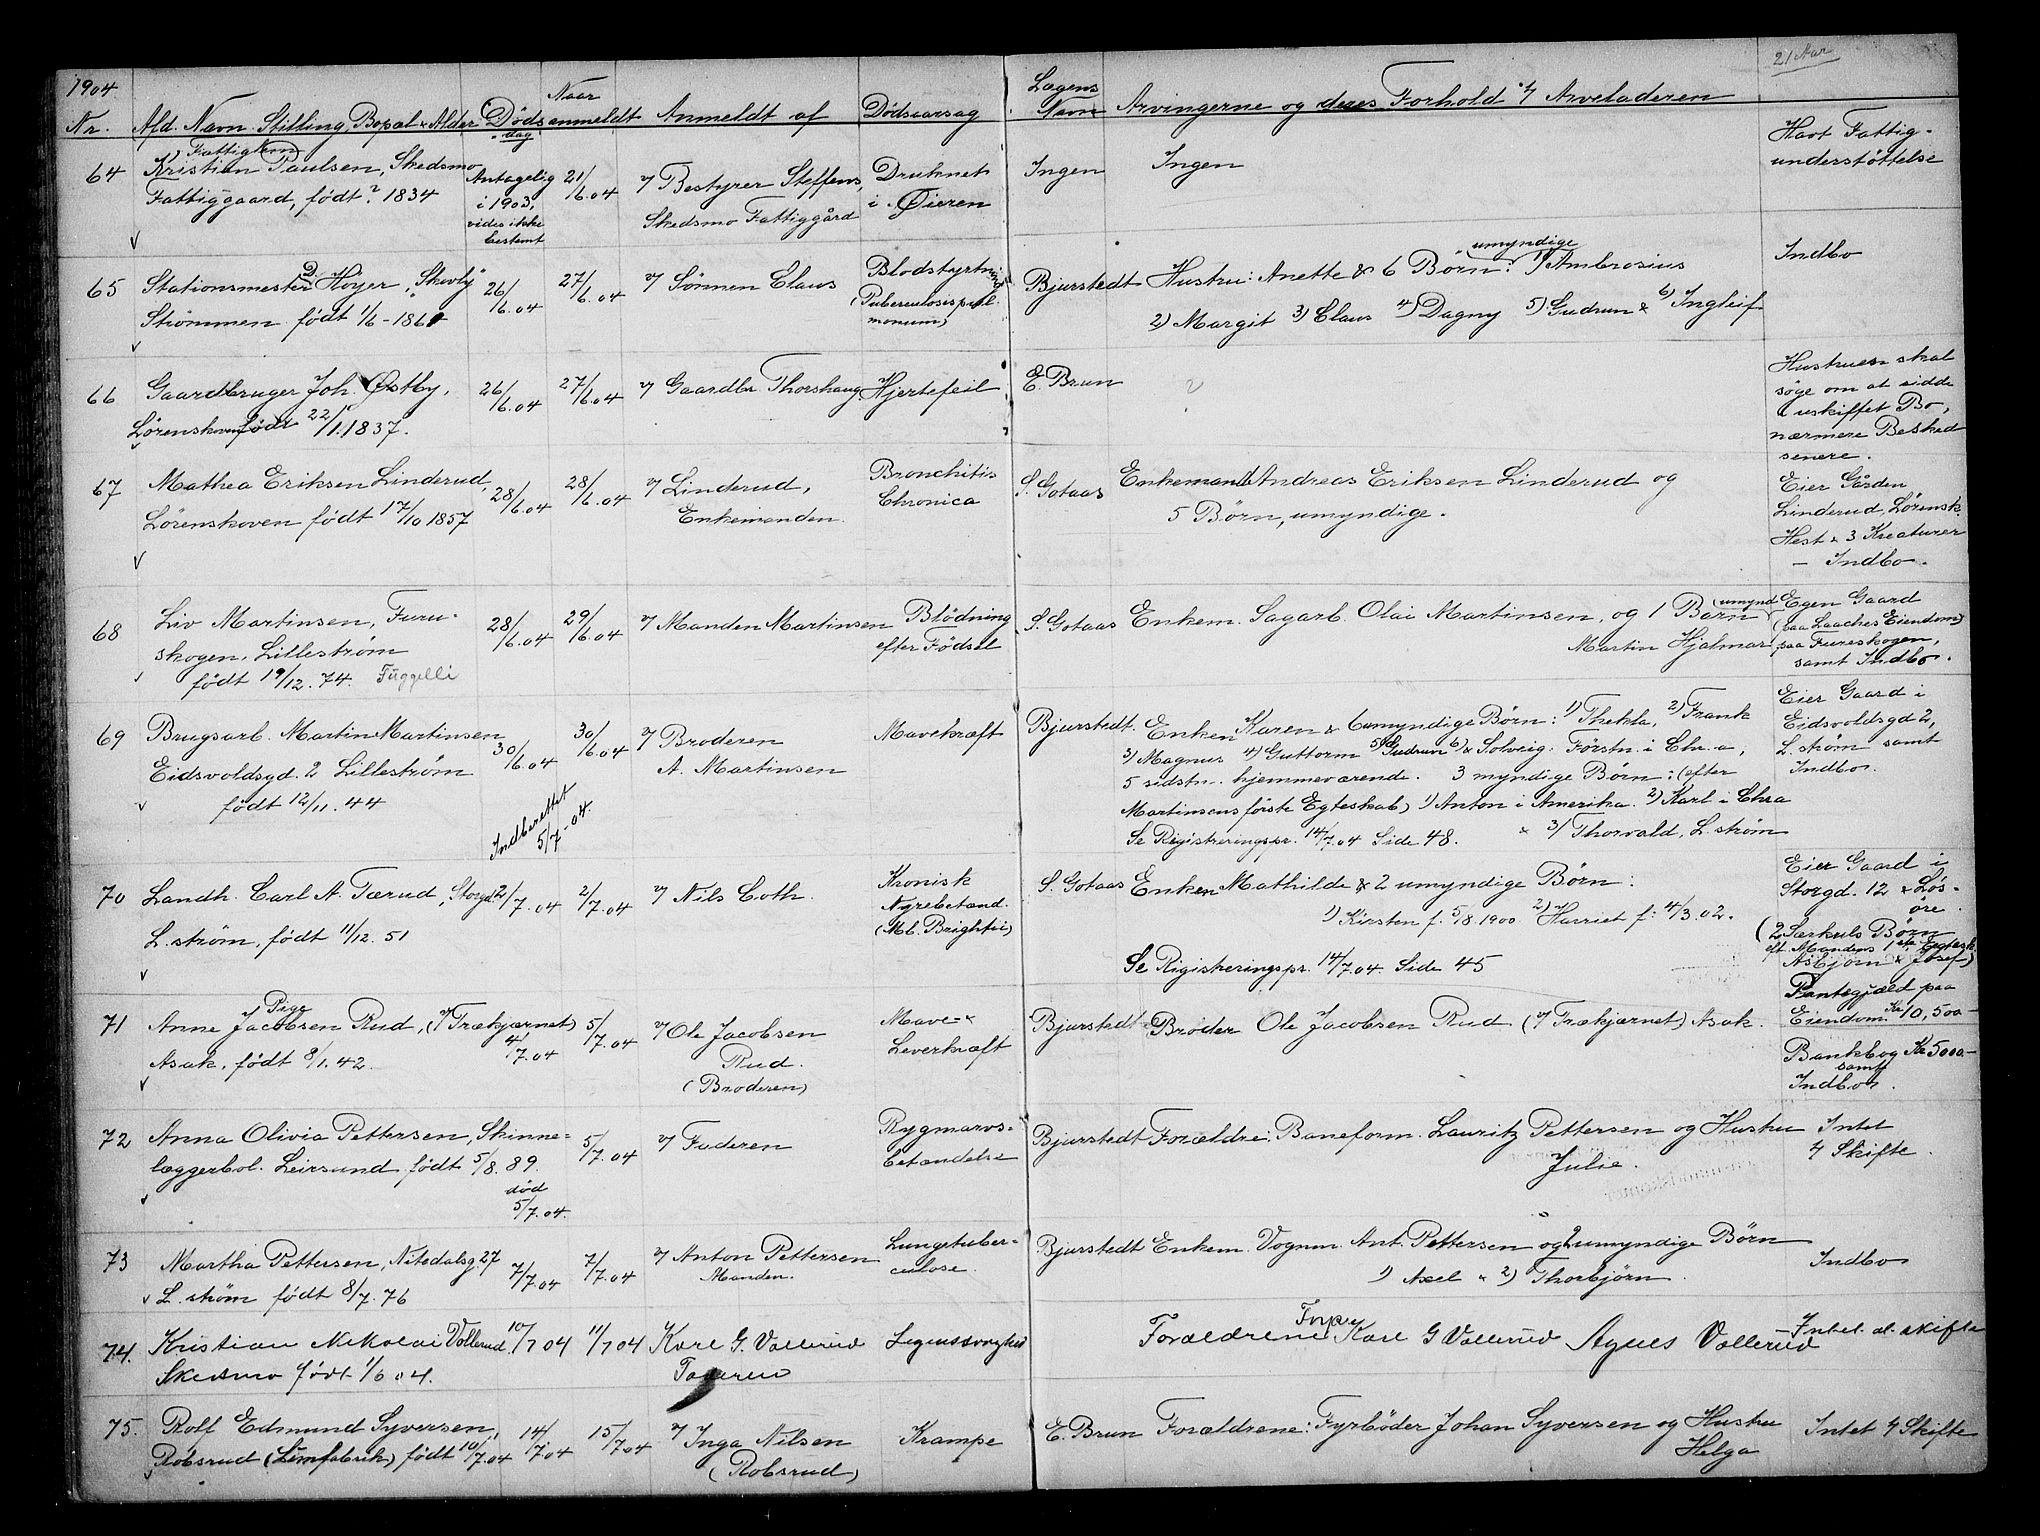 1904
21 Aar
Nr. Afd. Navn Stilling Bopæl & Alder Døds-dag Naar anmeldt Anmeldt af Dødsaarsag Lægens Navn Arvingerne og deres Forhold t/ Arveladeren
64 Fattiglem
Kristian Paulsen, Skedsmo
Fattiggaard, født? 1834
Antagelig
i 1903,
vides ikke
bestemt
21/6.04
v/ Bestyrer Steffens,
Skedsmo Fattiggård
Druknet
i Øieren
Ingen
Ingen
Havt Fattig-
understøttelse
65 Stationsmester D. Höyer, Skovly
Strømmen født 1/6-1861
26/6.04
27/6.04
v/ Sönnen Claus
Blodstyrtning
(Tuberculosis pul-
monum)
Bjurstedt
Hustru: Anette & 6 umyndige Börn: 1) Ambrosius
2) Margit 3) Claus 4) Dagny 5) Gudrun & 6) Ingleif
Indbo
66 Gaardbruger Joh. Østby,
Lörenskoven født 22/1.1837.
26/6.04
27/6.04
v/ Gaardbr. Thorshaug
Hjertefeil
E. Brun
?
Hustruen skal
søge om at sidde
i uskiftet Bo,
nærmere Besked
senere.
67 Mathea Eriksen Linderud,
Lörenskoven født 17/10 1857
28/6.04
28/6.04
v/ Linderud,
Enkemanden.
Bronchitis
Chronica
S. Gotaas
Enkemand Andreas Eriksen Linderud og
5 Börn, umyndige.
Eier Gården
Linderud, Lörensk.
Hest & 3 Kreaturer
- Indbo.
68 Liv Martinsen, Furu-
skogen, Lilleström
født 19/12.74. Fuggelli
28/6.04
29/6.04
v/ Manden Martinsen
Blödning
efter Födsel
S. Gotaas
Enkem. Sagarb. Olai Martinsen, og 1 umynd. Barn
Martin Hjalmar
Egen Gaard
(paa Laaches Eiendom)
paa Fureskogen,
samt Indbo.
69 Brugsarb. Martin Martinsen
Eidsvoldsgd. 2 Lilleström
født 12/11.44
30/6.04
30/6.04
Indberettet
5/7-04.
v/ Broderen
A. Martinsen
Mavekræft
Bjurstedt.
Enken Karen & 6 umyndige Börn: 1) Thekla, 2) Frank
3) Magnus 4) Guttorm 5) Gudrun & 6) Solveig. Förstn. i Chr.a,
5 sidstn. hjemmeværende. 3 myndige Börn: (efter
Martinsens förste Egteskab) 1) Anton i Amerika. 2) Karl i Chra
& 3) Thorvald, L.ström
Se Registreringspr. 14/7.04 Side 48.
Eier Gaard i
Eidsvoldsgd 2,
L.ström samt
Indbo.
70 Landh. Carl A. Tærud, Storgd.
L.ström, født 11/12.51
2/7.04
2/7.04
v/ Nils Coth.
Kronisk
Nyrebetænd.
(Mb. Brightii)
S. Gotaas
Enken Mathilde & 2 umyndige Börn:
1) Kirsten f. 5/8.1900 2) Harriet f: 4/3.02.
Se Rigistreringspr. 14/7.04 Side 45
Eier Gaard i
Storgd. 12 & Lös-
öre.
(2 Særkuls Börn
eft. Mandens 1ste Egtesk.
Asbjørn & Josef)
Pantegjæld paa
Eiendom. Kr 10,500-
71 Pige
Anne Jacobsen Rud, (v/ Trækjærnet)
Asak, født 8/1.42.
4/7.04
5/7.04
v/ Ole Jacobsen
Rud.
(Broderen)
Mave- &
Leverkræft
Bjurstedt
Broder Ole Jacobsen Rud (v/ Trækjærnet) Asak.
Bankbog Kr 5000-
samt
Indbo.
72 Anna Olivia Pettersen, Skinne-
læggerbol. Leirsund født 5/8.89.
död
5/7.04.
5/7.04
v/ Faderen
Rygmarvs-
betændelse
Bjurstedt
Forældre: Baneform. Lauritz Pettersen og Hustru
Julie.
Intet
t/ Skifte.
73 Martha Pettersen, Nitedalsg 27
L.ström født 8/7.76
7/7.04
7/7.04
v/ Anton Pettersen
Manden.
Lungetuber-
culose.
Bjurstedt
Enkem. Vognm. Ant. Pettersen og 2 umyndige Börn
1) Axel & 2) Thorbjörn.
Indbo
74. Kristian Nikolai Vollerud.
Skedsmo født 1/6 04.
10/7 04
11/7 04
Karl G. Vollerud
Faderen
Forældrene Karl G Vollerud Agnes Vollerud
Intet at skifte
75. Rolf Edmund Syversen,
Robsrud (Limfabrik) født 10/7.04
14/7.04
15/7.04
v/ Inga Nilsen
(Robsrud)
Krampe
E. Brun
Forældrene: Fyrböder Johan Syversen og Hustru
Helga
Intet t/ Skifte